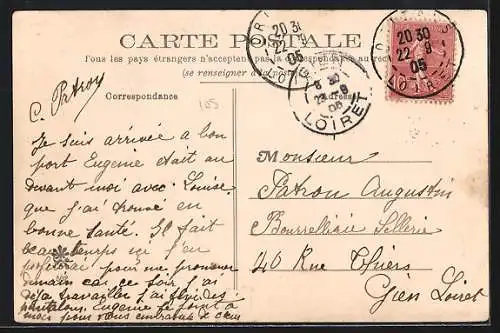 CARTE POSTALE
Tous les pays étrangers n'acceptent pas la correspondance au recto
(se renseigner à la poste)
C. Patron
Correspondance
105
Je suis arrivée a bon
port Eugenie etait au
devant moi avec Louise
que j'ai trouvé en
bonne santé. Il fait
beau temps
pour me promener
demain car ce soir j'ai
déja travailler j'ai
pantalons Eugenie
moi pour vous embrasser de cœur
Monsieur
Patron Augustin
Bourrellerie Sellerie
40 Rue Thiers
Gien Loiret
20 30
22 - 8
05
LOIRET
22 - 8
05
LOIRET
20 30
22 8
05
LOIRET